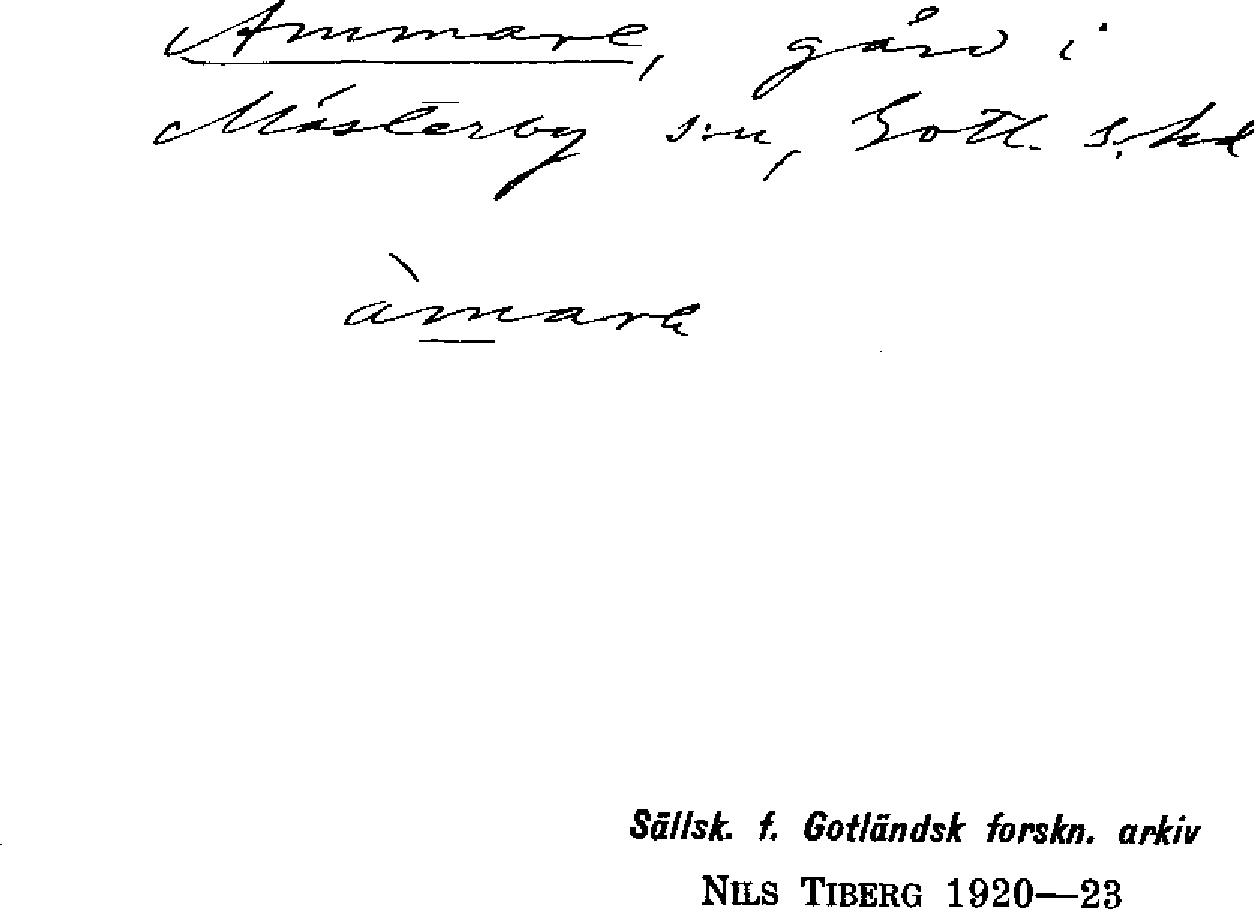 Ammare, gård i
Mästerby s:n, Gotl. s. hd
àmarε
Sällsk. f. Gotländsk forskn. arkiv
NILS TIBERG 1920—23